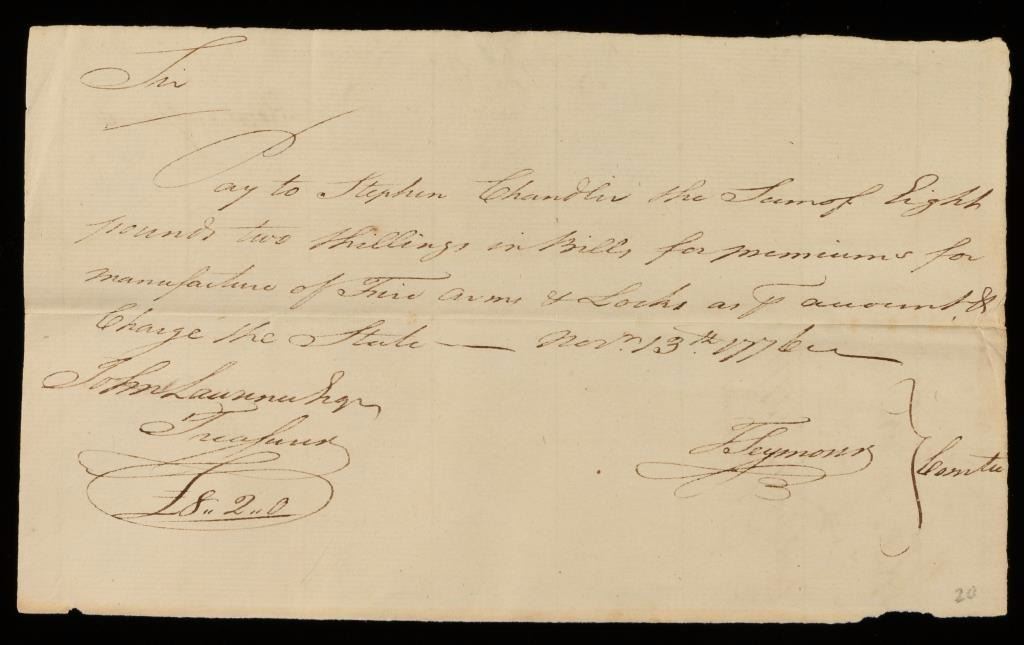 Sir
Pay to Stephen Chandler the Sum of Eight
pounds two shillings in Bills for premiums for
manufacture of Fire Arms & Locks as ⅌ account, &
Charge the State — Novr. 13th. 1776
John Lawrence Esqr
Treasurer
£8 „ 2 „ 0
T Seymour
Comtee
20